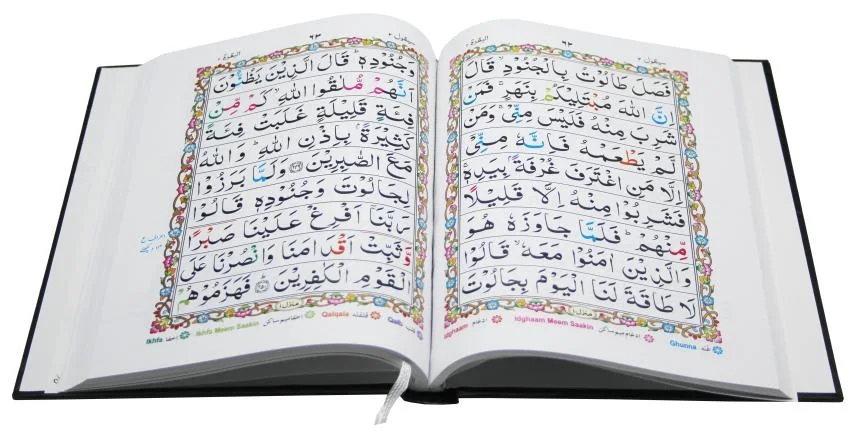 سيقول ٢ ٦٢ البقرة ٢
فَصَلَ طَالُوْتُ بِالْجُنُوْدِ ۙ قَالَ
اِنَّ اللّٰهَ مُبْتَلِيْكُمْ بِنَهَرٍ ۚ فَمَنْ
شَرِبَ مِنْهُ فَلَيْسَ مِنِّىْ ۚ وَمَنْ
لَّمْ يَطْعَمْهُ فَاِنَّهٗ مِنِّىْۤ
اِلَّا مَنِ اغْتَرَفَ غُرْفَةًۢ بِيَدِهٖ ۚ
فَشَرِبُوْا مِنْهُ اِلَّا قَلِيْلًا
مِّنْهُمْ ؕ فَلَمَّا جَاوَزَهٗ هُوَ
وَالَّذِيْنَ اٰمَنُوْا مَعَهٗ ۙ قَالُوْا
لَا طَاقَةَ لَنَا الْيَوْمَ بِجَالُوْتَ
منزل ١
Ghunna غنه Idghaam Meem Saakin ادغام ميم ساكن Idghaam ادغام
سيقول ٢ ٦٣ البقرة ٢
وَجُنُوْدِهٖ ؕ قَالَ الَّذِيْنَ يَظُنُّوْنَ
اَنَّهُمْ مُّلٰقُوا اللّٰهِ ۙ كَمْ مِّنْ
فِئَةٍ قَلِيْلَةٍ غَلَبَتْ فِئَةً
كَثِيْرَةًۢ بِاِذْنِ اللّٰهِ ؕ وَاللّٰهُ
مَعَ الصّٰبِرِيْنَ ۝٢٤٩ وَلَمَّا بَرَزُوْا
لِجَالُوْتَ وَجُنُوْدِهٖ قَالُوْا
رَبَّنَاۤ اَفْرِغْ عَلَيْنَا صَبْرًا
وَّثَبِّتْ اَقْدَامَنَا وَانْصُرْنَا عَلَى
الْقَوْمِ الْكٰفِرِيْنَ ۝٢٥٠ؕ فَهَزَمُوْهُمْ
منزل ١
Qalb قلب Qalqala قلقله Ikhfa Meem Saakin اخفا ميم ساكن Ikhfa اخفا